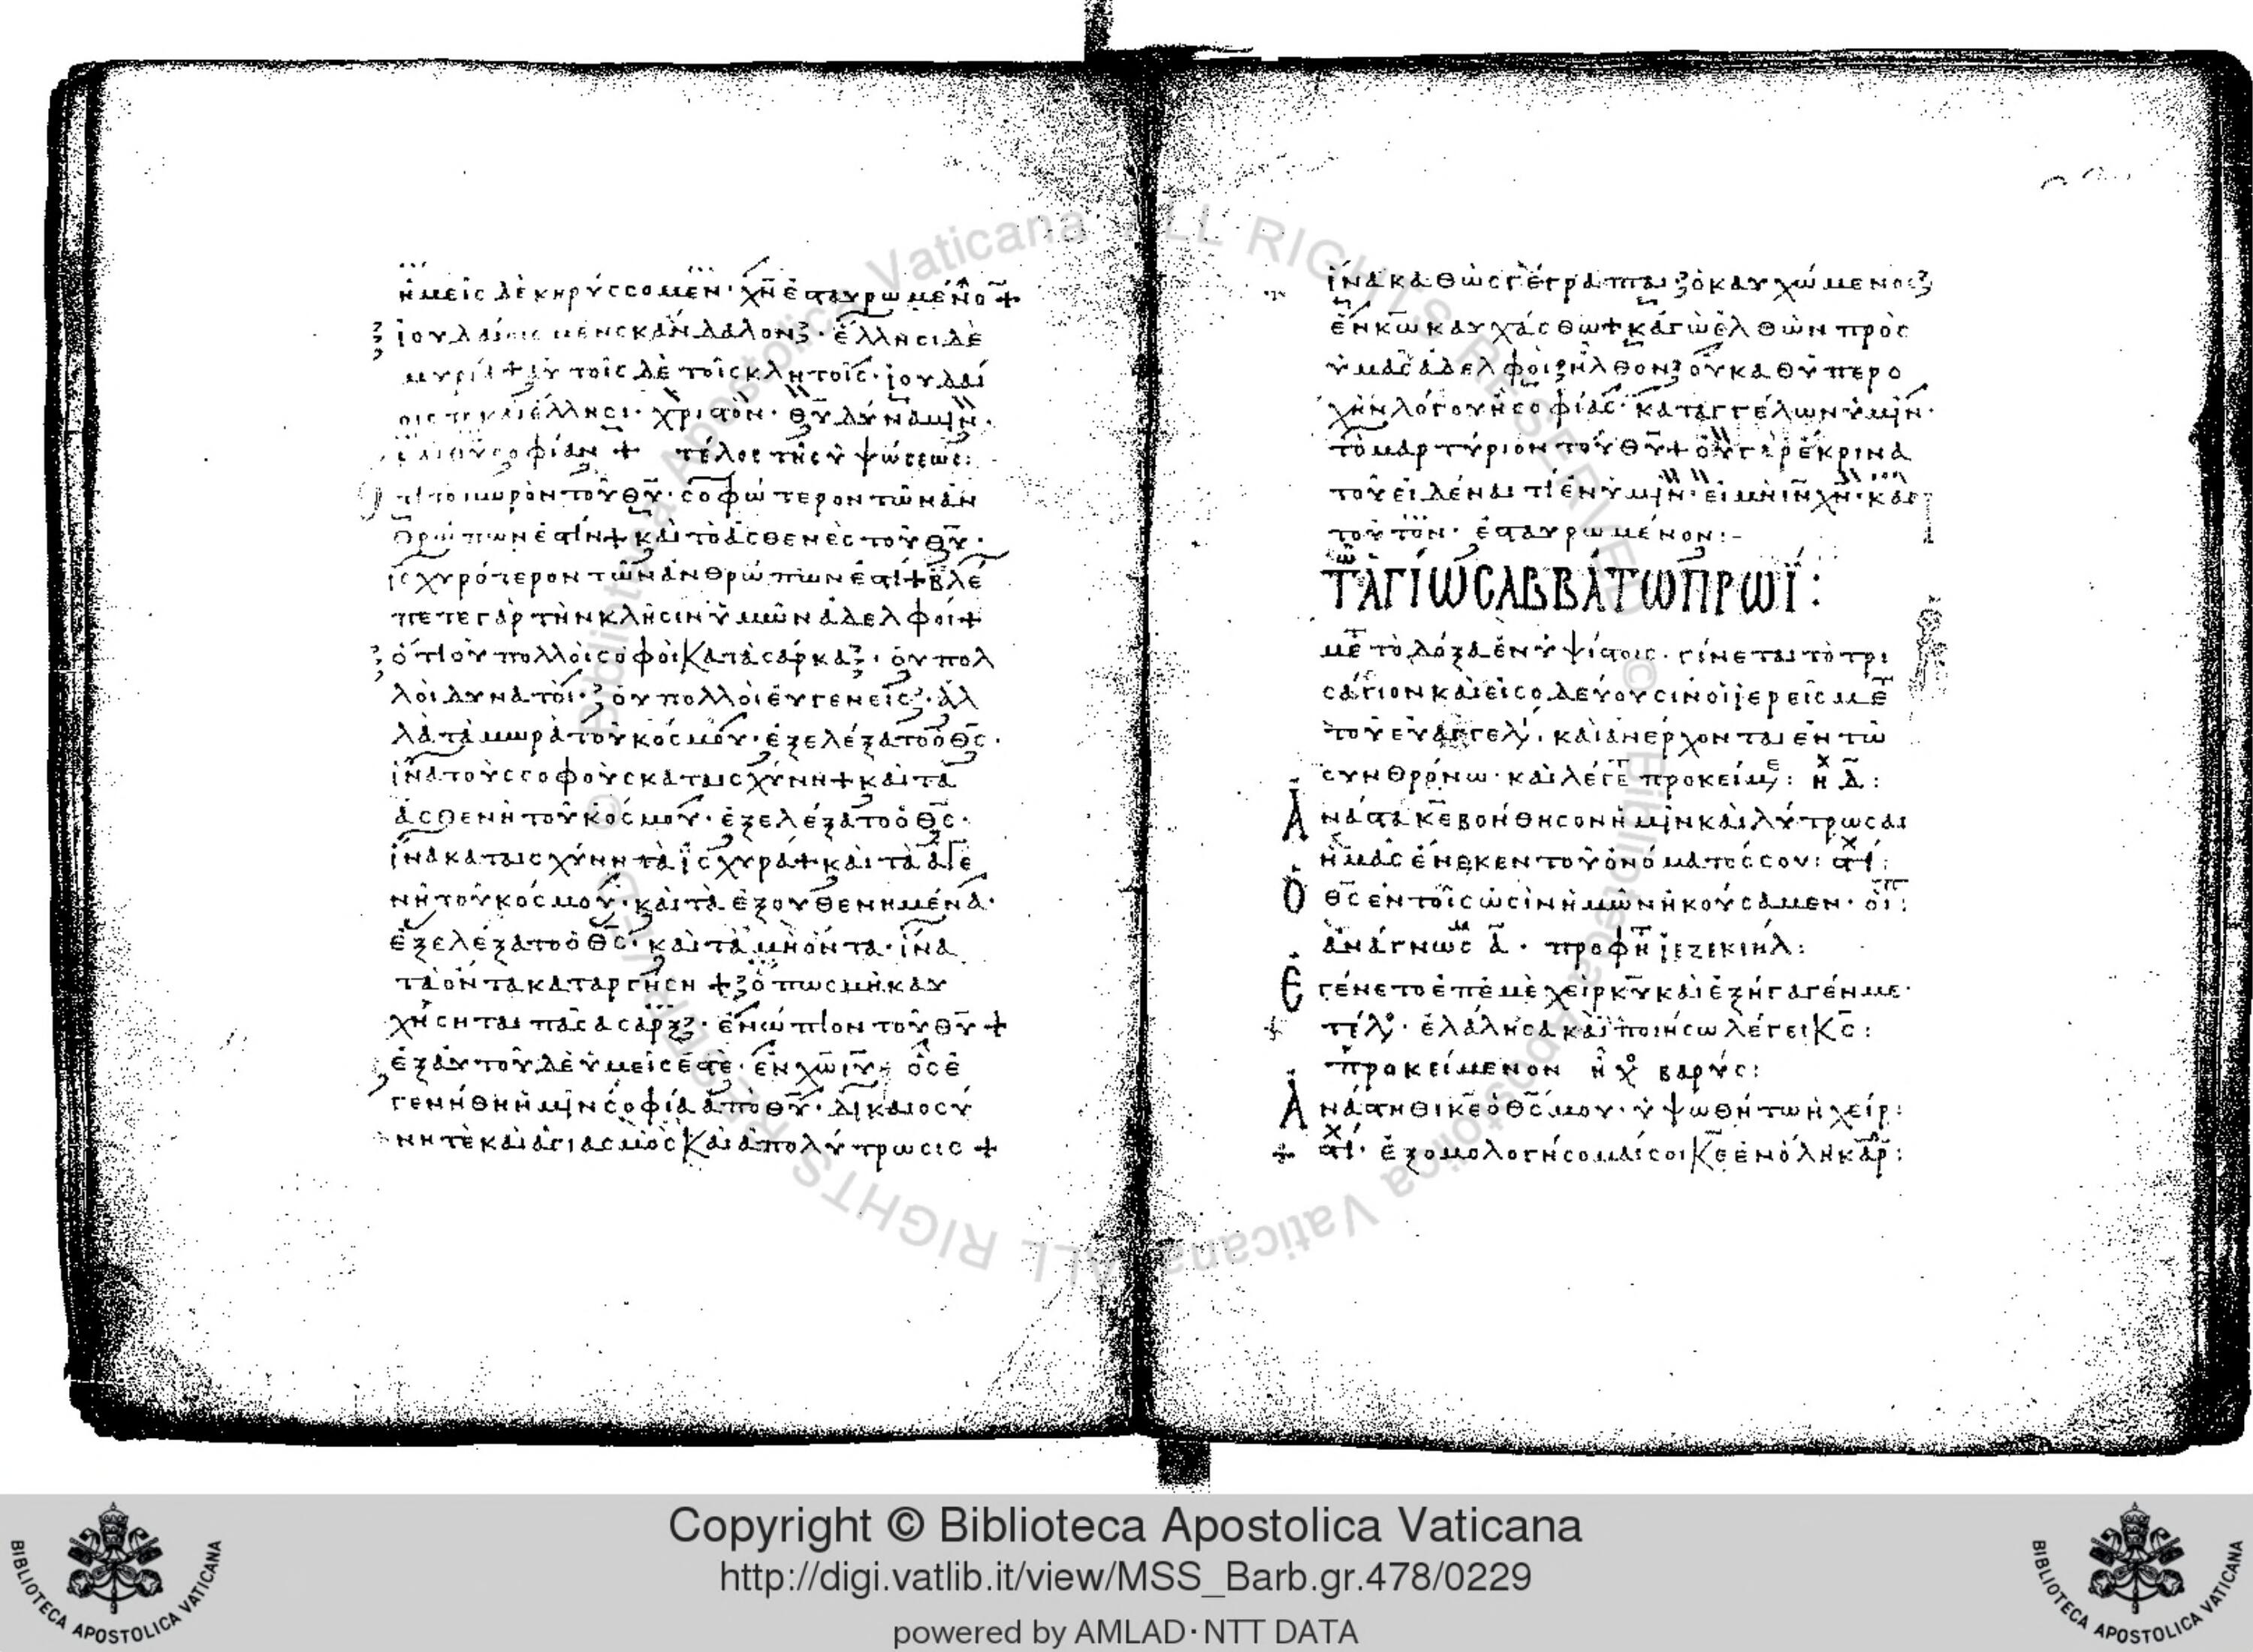 ἡμεῖς δὲ κηρύσσομεν· χν̄ ἐσταυρωμένον +
ἰουδαίοις μὲν σκάνδαλον· ἕλλησι δὲ
μωρίαν + αὐτοῖς δὲ τοῖς κλητοῖς· ἰουδαί
οις τε καὶ ἕλλησι· χριστὸν· θῡ δύναμιν·
καὶ θῡ σοφίαν + τέλος τῆς ὑψώσεως:
ὅτι τὸ μωρὸν τοῦ θῡ· σοφώτερον τῶν ἀν
θρώπων ἐστίν + καὶ τὸ ἀσθενὲς τοῦ θῡ·
ἰσχυρότερον τῶν ἀνθρώπων ἐστί + βλέ
πετε γὰρ τὴν κλῆσιν ὑμῶν ἀδελφοί +
ὅτι οὐ πολλοὶ σοφοὶ κατὰ σάρκα· οὐ πολ
λοὶ δυνατοί· οὐ πολλοὶ εὐγενεῖς· ἀλ
λὰ τὰ μωρὰ τοῦ κόσμου· ἐξελέξατο ὁ θς̄·
ἵνα τοὺς σοφοὺς καταισχύνη + καὶ τὰ
ἀσθενῆ τοῦ κόσμου· ἐξελέξατο ὁ θς̄·
ἵνα καταισχύνη τὰ ἰσχυρά + καὶ τὰ ἀγε
νῆ τοῦ κόσμου· καὶ τὰ ἐξουθενημένα·
ἐξελέξατο ὁ θς̄· καὶ τὰ μὴ ὄντα· ἵνα
τὰ ὄντα καταργήση + ὅπως μὴ καυ
χήσηται πᾶσα σάρξ· ἐνώπιον τοῦ θῡ +
ἐξ αὐτοῦ δὲ ὑμεῖς ἐστὲ· ἐν χω̄ ιῡ· ὃς ἐ
γενήθη ἡμῖν σοφία ἀπὸ θῡ· δικαιοσύ
νη τὲ καὶ ἁγιασμὸς καὶ ἀπολύτρωσις +
ἵνα καθὼς γέγραπται ὁ καυχώμενος
ἐν κω̄ καυχάσθω + κἀγὼ ἐλθὼν πρὸς
ὑμᾶς ἀδελφοὶ ἦλθον οὐ καθ' ὑπερο
χὴν λόγου ἢ σοφίας· καταγγέλων ὑμῖν·
τὸ μαρτύριον τοῦ θῡ + οὐ γὰρ ἔκρινα
τοῦ εἰδέναι τὶ ἐν ὑμῖν· εἰ μὴ ιν̄ χν̄· καὶ
τοῦτον· ἐσταυρωμένον:-
ΤΩ ἉΓΊΩ ΣΑΒΒΆΤΩ ΠΡΩΪ́:
με̄τ τὸ δόξα ἐν ὑψίστοις· γίνεται τὸ τρι
σάγιον καὶ εἰσοδεύουσιν οἱ ἱερεῖς με̄τ
τοῦ εὐαγγελ· καὶ ἀνέρχονται ἐν τῶ
συνθρόνω· καὶ λέγετ προκείμε: ηχ δ̄:
Ἀνάστα κε̄ βοήθησον ἡμῖν καὶ λύτρωσαι
ἡμᾶς ἕνεκεν τοῦ ὀνόματός σου: στίχ:
Ὁ θς̄ ἐν τοῖς ὠσὶν ἡμῶν ἠκούσαμεν· οἱ π:
ἀνάγνωσμ ᾱ· προφητ ἰεζεκιήλ:
Ἐγένετο ἐπ' ἐμὲ χεὶρ κῡ καὶ ἐξήγαγέν με·
τέλο· ἐλάλησα καὶ ποιήσω λέγει κς̄:
προκείμενον ἦχο βαρύς:
Ἀνάστηθι κε̄ ὁ θς̄ μου· ὑψωθήτω ἡ χείρ:
στίχ· ἐξομολογήσομαί σοι κε̄ ἐν ὅλη καρ:
Copyright © Biblioteca Apostolica Vaticana
http://digi.vatlib.it/view/MSS_Barb.gr.478/0229
powered by AMLAD·NTT DATA
BIBLIOTECA APOSTOLICA VATICANA
BIBLIOTECA APOSTOLICA VATICANA